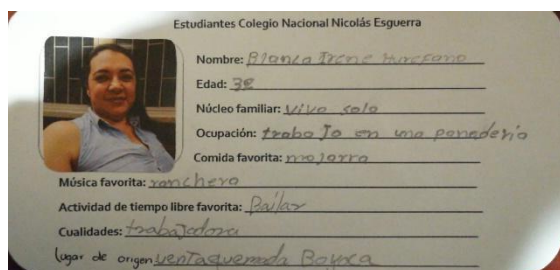 Estudiantes Colegio Nacional Nicolás Esguerra
Nombre: Blanca Irene
Edad: 38
Núcleo familiar: vivo solo
Ocupación: trabajo en una panaderia
Comida favorita: mojarra
Música favorita: ranchera
Actividad de tiempo libre favorita: Bailar
Cualidades: trabajadora
lugar de origen ventaquemada Boyaca